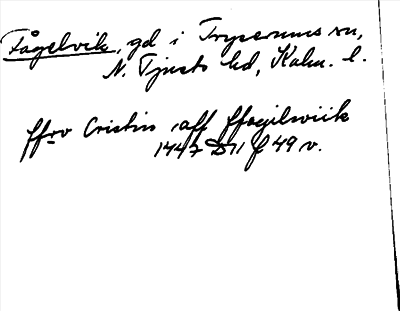 Fågelvik, gd i Tryserums sn,
N. Tjusts hd, Kalm. l.
ffrv Cristin aff ffogilwiik
1447 D11 f 49 v.